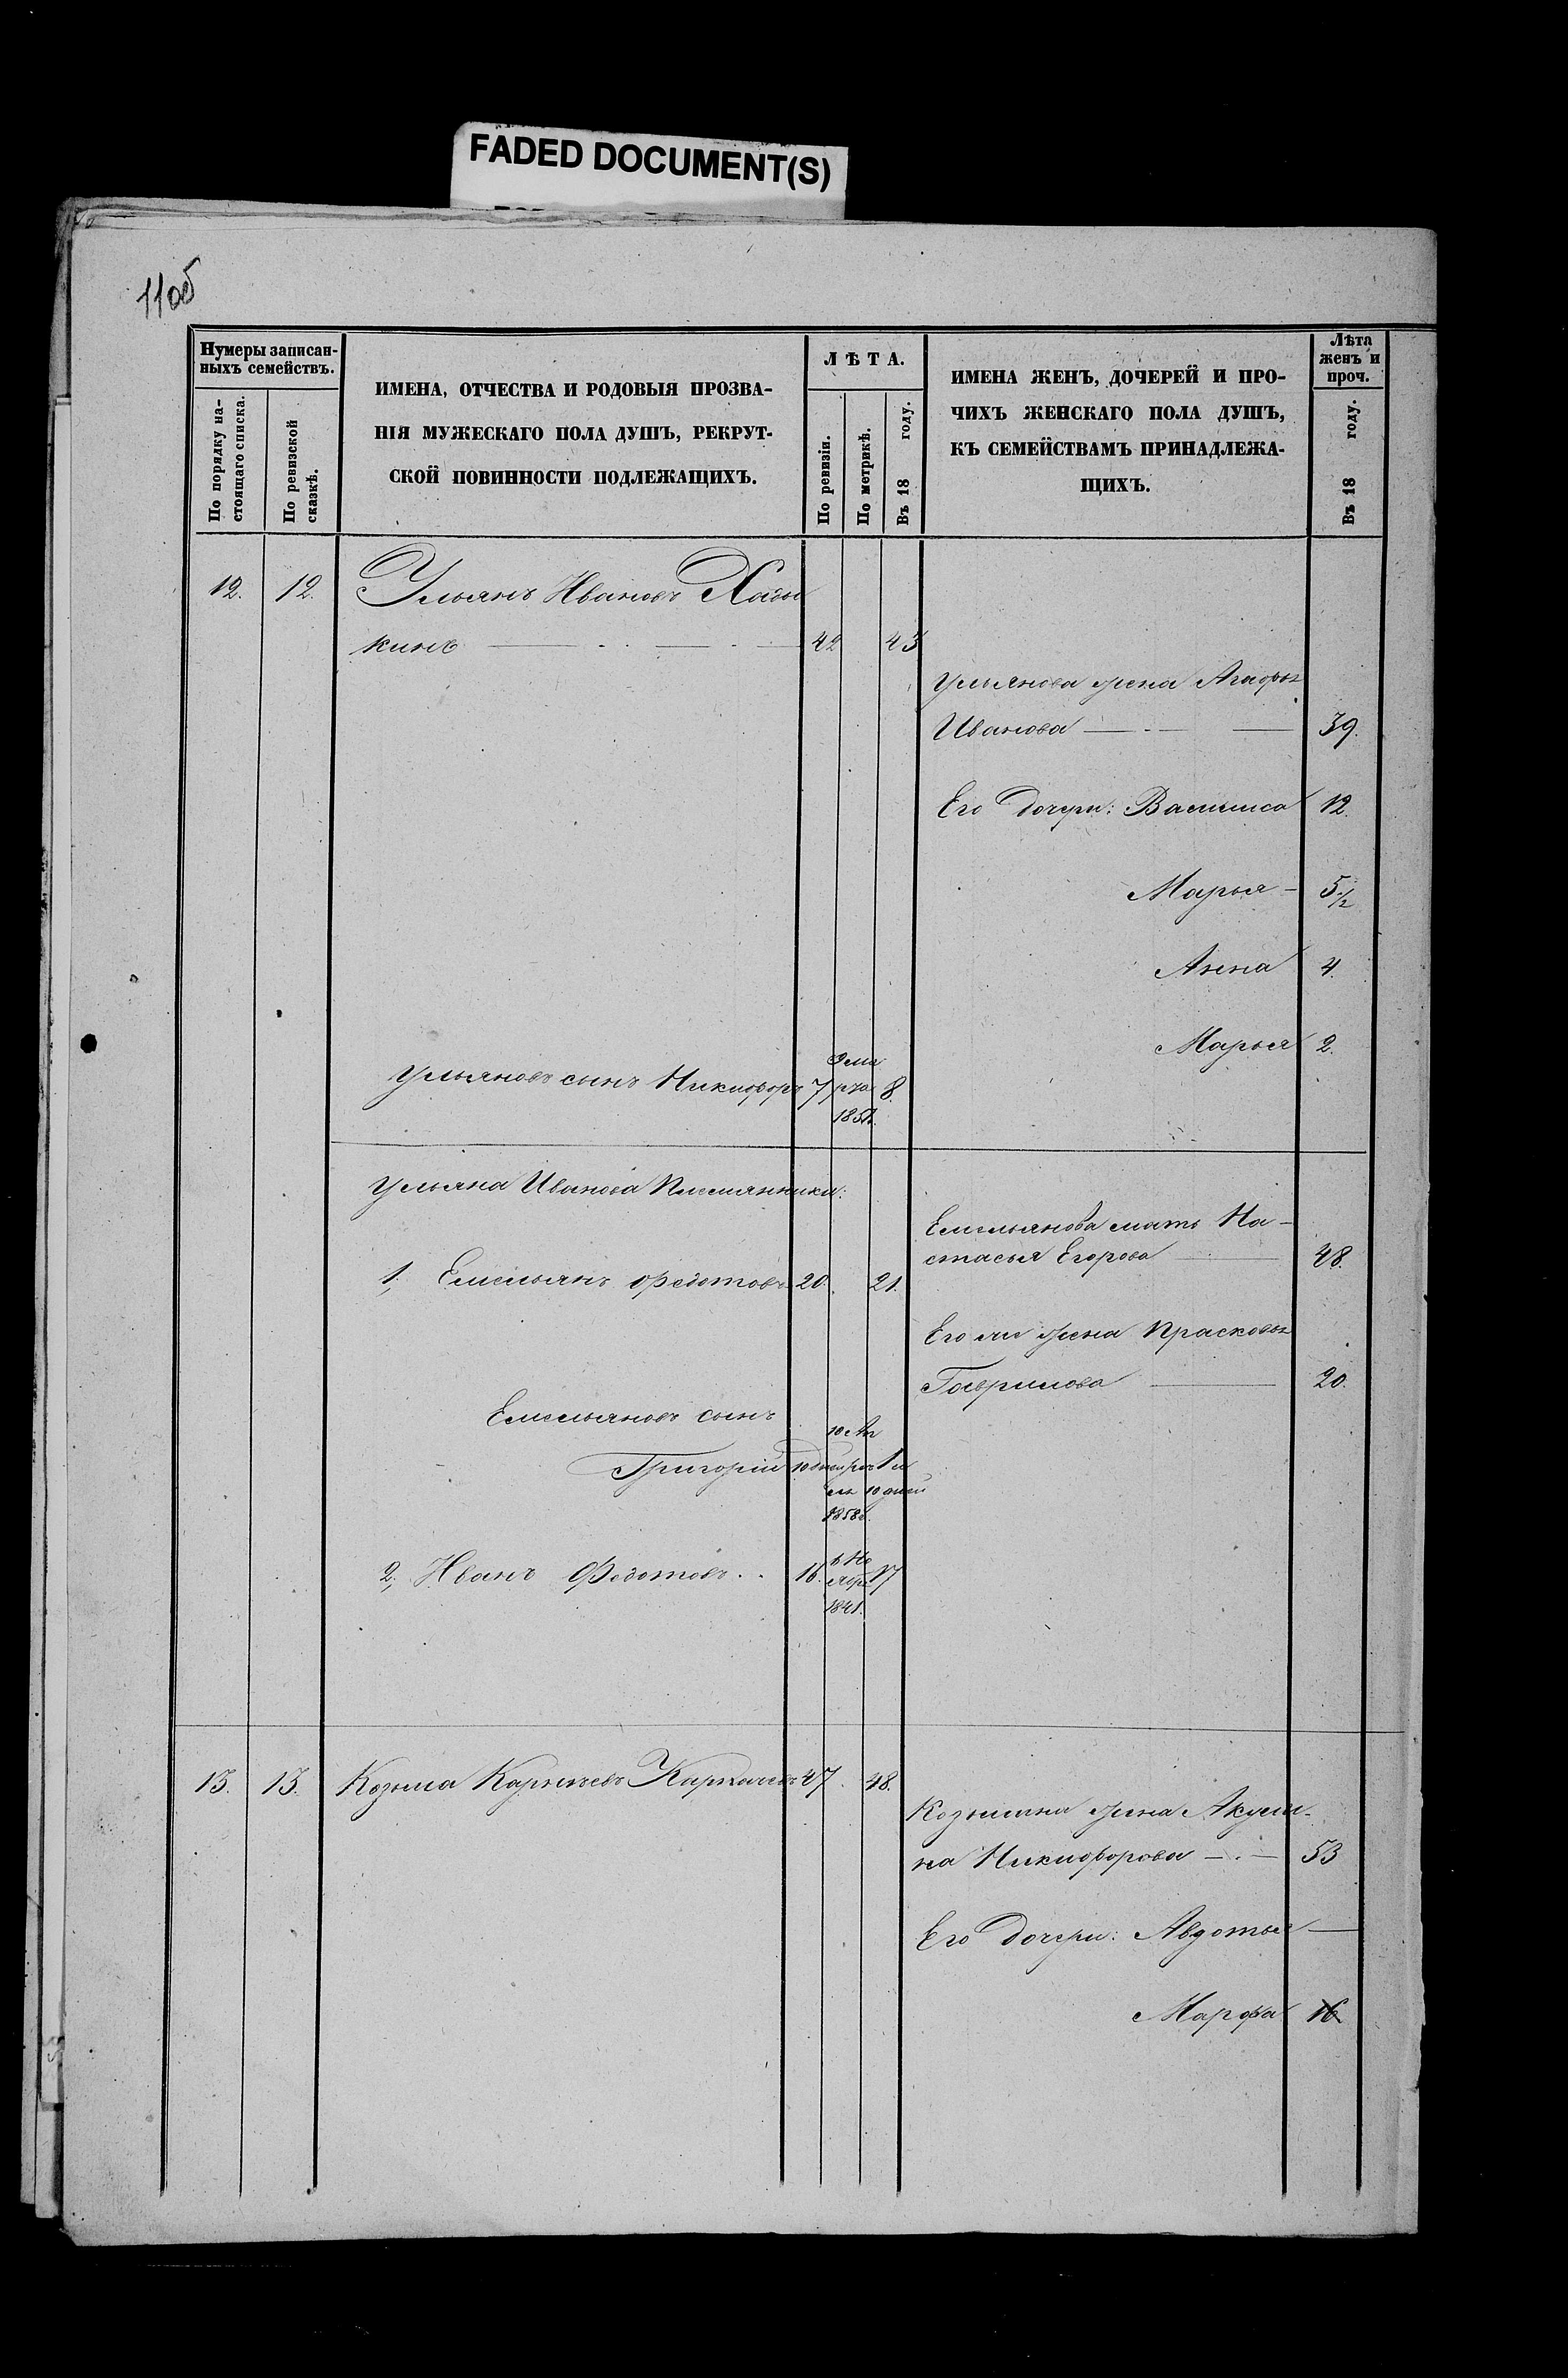 FADED DOCUMENT(S)
11об
Нумеры записан-
ныхъ семействъ.
По порядку на-
стоящаго списка.
По ревизской
сказкѣ.
ИМЕНА, ОТЧЕСТВА И РОДОВЫЯ ПРОЗВА-
НІЯ МУЖЕСКАГО ПОЛА ДУШЪ, РЕКРУТ-
СКОЙ ПОВИННОСТИ ПОДЛЕЖАЩИХЪ.
ЛѢТА.
По ревизіи.
По метрикѣ.
Въ 18 году.
ИМЕНА ЖЕНЪ, ДОЧЕРЕЙ И ПРО-
ЧИХЪ ЖЕНСКАГО ПОЛА ДУШЪ,
КЪ СЕМЕЙСТВАМЪ ПРИНАДЛЕЖА-
ЩИХЪ.
Лѣта
женъ и
проч.
Въ 18 году.
12. 12. Ульянъ Ивановъ Хады
кинъ 42 43
Ульянова жена Агафья
Иванова 39.
Его дочери: Василиса 12.
Марья 5 1/2
Анна 4.
Марья 2.
Ульяновъ сынъ Никифоръ 7 9 ма
рта 8.
1851.
Ульяна Иванова Племянники:
Емельянова мать На-
стасья Егорова 48.
1, Емельянъ Федотовъ 20. 21.
Его жена Прасковья
Гаврилова 20.
Емельяновъ сынъ
Григорій
10 дней
1858
2, Иванъ Федотовъ 16. 6 Но
ября 17
1841.
13. 13. Козьма 47. 48.
Козьмина жена Акули-
на Никифорова 53
Его дочери: Авдотья —
Марфа 16